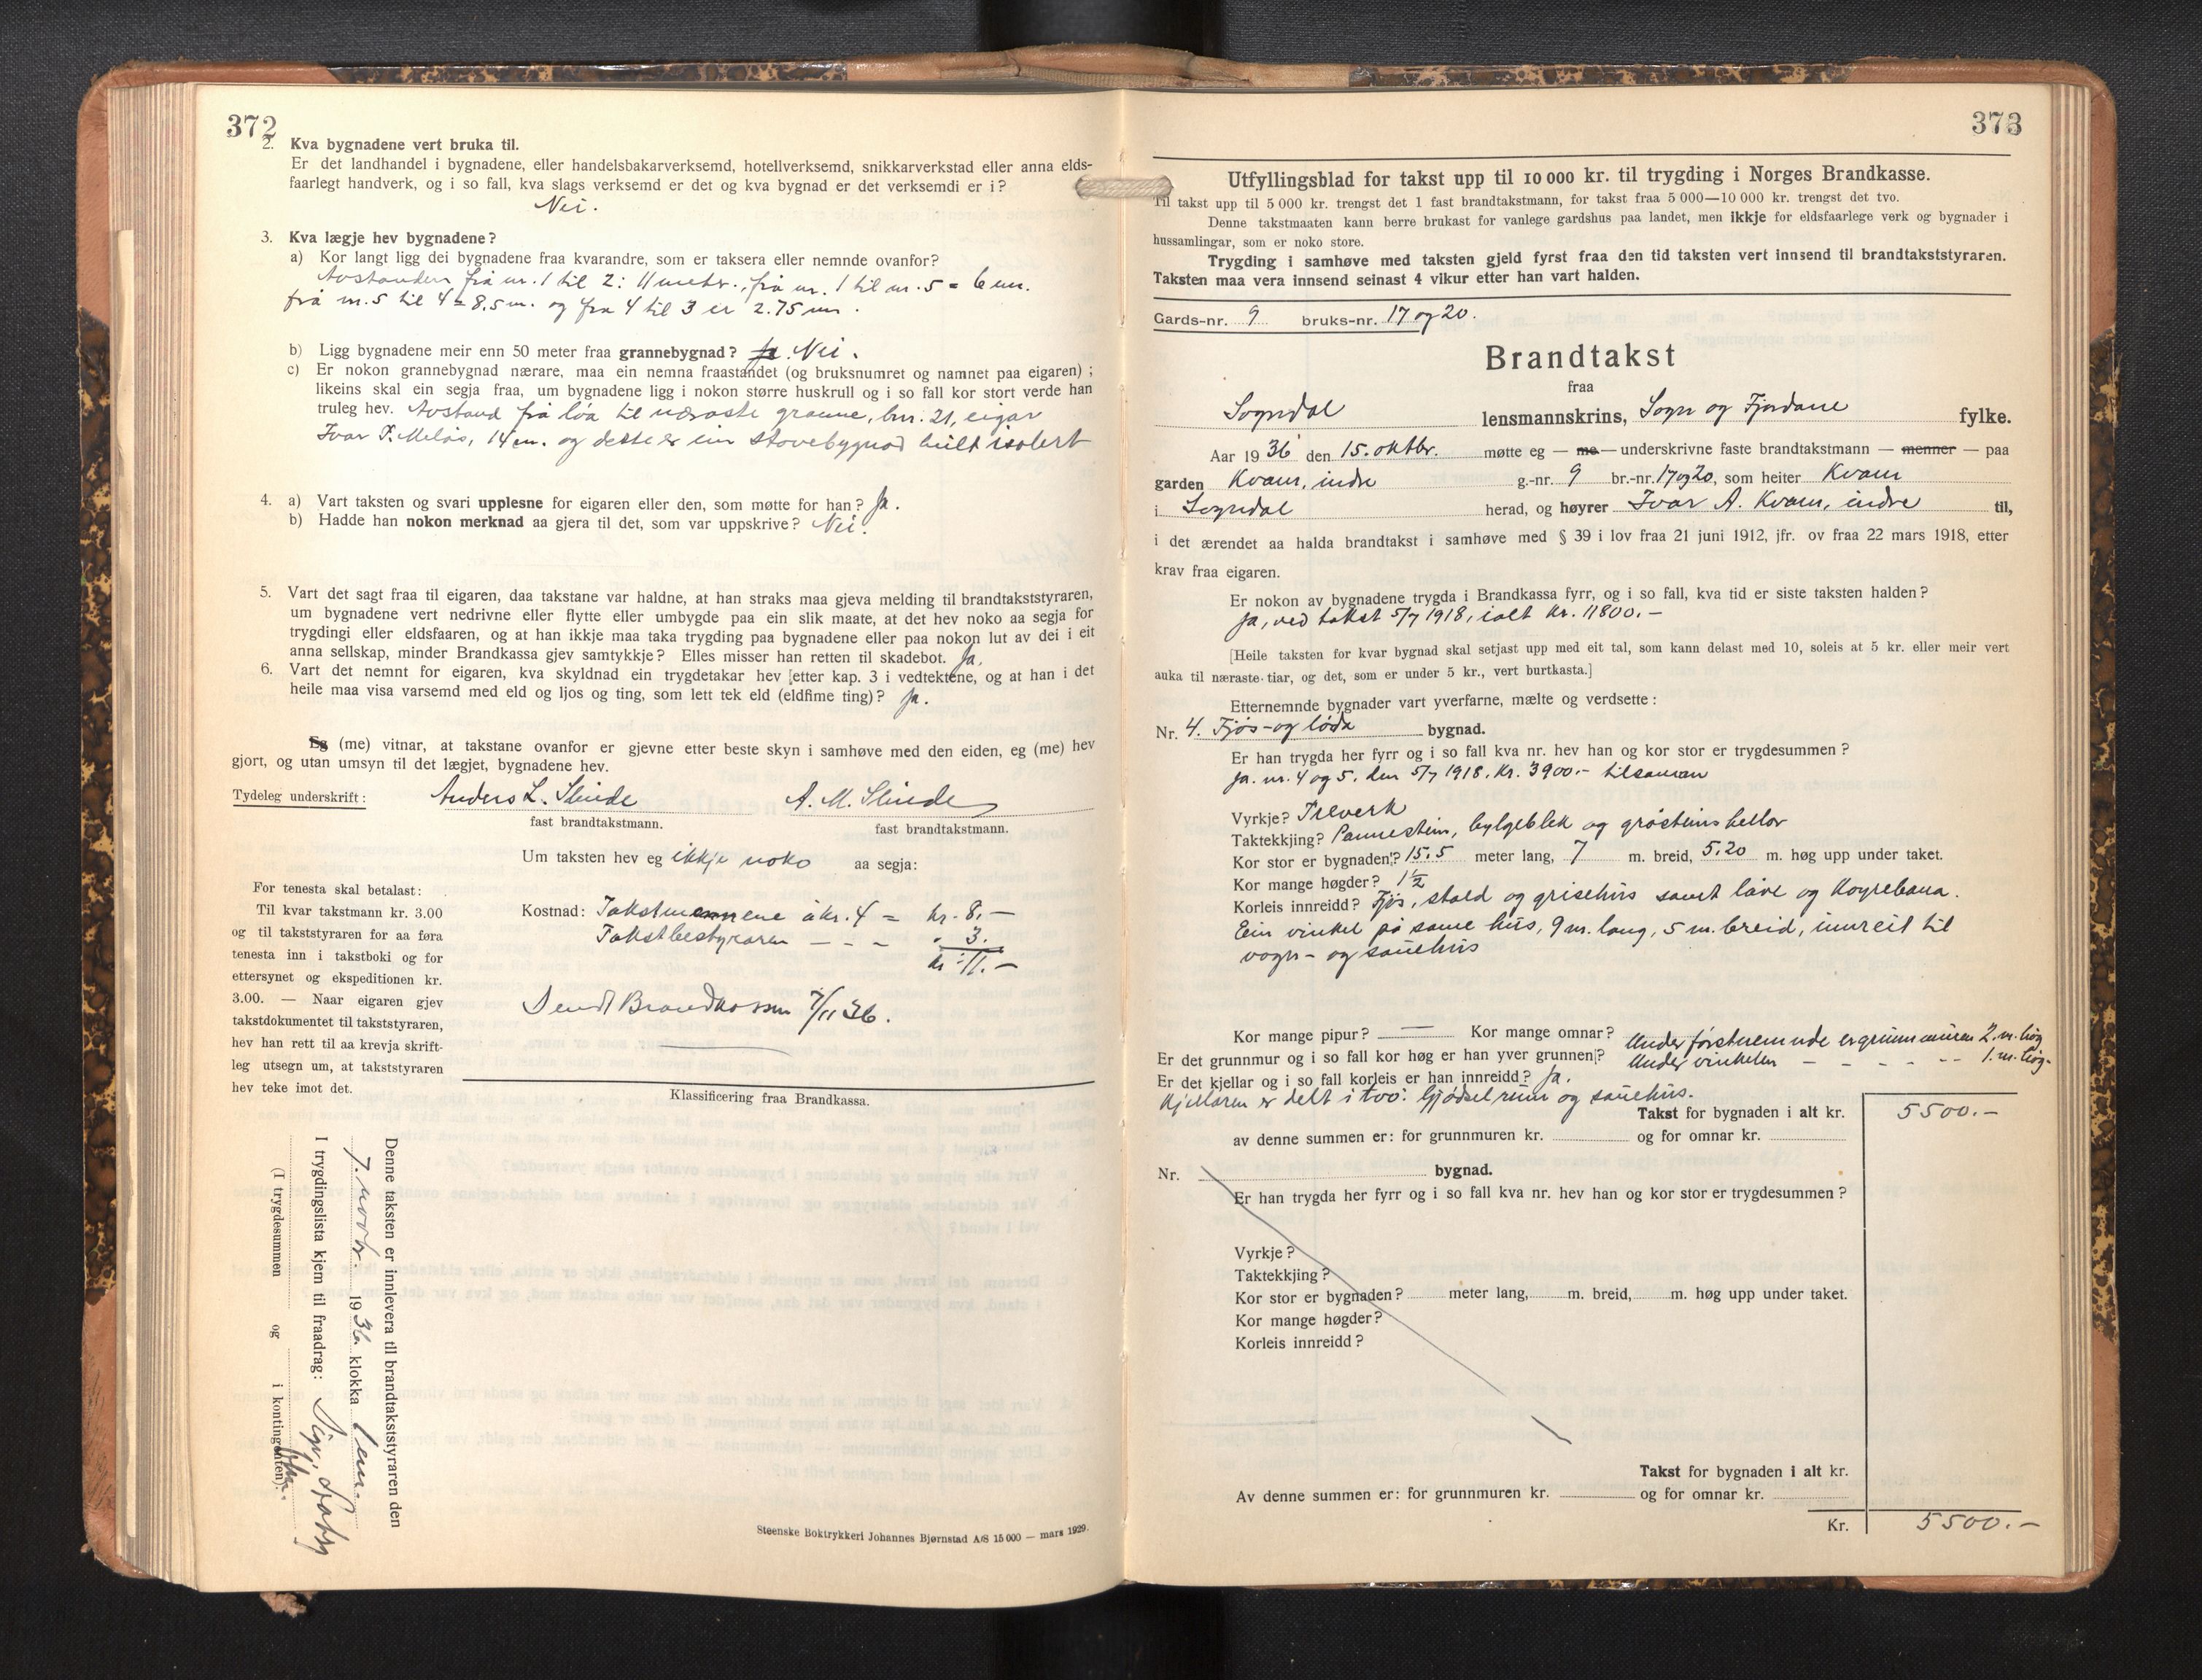 372
2. Kva bygnadene vert bruka til.
Er det landhandel i bygnadene, eller handelsbakarverksemd, hotellverksemd, snikkarverkstad eller anna elds-
faarlegt handverk, og i so fall, kva slags verksemd er det og kva bygnad er det verksemdi er i?
Nei.
3. Kva lægje hev bygnadene?
a) Kor langt ligg dei bygnadene fraa kvarandre, som er taksera eller nemnde ovanfor?
Avstanden frå nr. 1 til 2: 11 metr., frå nr. 1 til nr. 5 = 6 m.
frå nr. 5 til 4 = 8,5 m. og fra 4 til 3 er 2.75 m.
b) Ligg bygnadene meir enn 50 meter fraa grannebygnad? Ja. Nei.
c) Er nokon grannebygnad nærare, maa ein nemna fraastandet (og bruksnumret og namnet paa eigaren) ;
likeins skal ein segja fraa, um bygnadene ligg i nokon større huskrull og i so fall kor stort verde han
truleg hev. Avstand frå løa til næraste granne, bnr. 21, eigar
Ivar P. Melås, 14 m. og dette er ein stovebygnad heilt isolert
4. a) Vart taksten og svari upplesne for eigaren eller den, som møtte for han? Ja.
b) Hadde han nokon merknad aa gjera til det, som var uppskrive? Nei.
5. Vart det sagt fraa til eigaren, daa takstane var haldne, at han straks maa gjeva melding til brandtakststyraren,
um bygnadene vert nedrivne eller flytte eller umbygde paa ein slik maate, at det hev noko aa segja for
trygdingi eller eldsfaaren, og at han ikkje maa taka trygding paa bygnadene eller paa nokon lut av dei i eit
anna sellskap, minder Brandkassa gjev samtykkje? Elles misser han retten til skadebot. Ja.
6. Vart det nemnt for eigaren, kva skyldnad ein trygdetakar hev [etter kap. 3 i vedtektene, og at han i det
heile maa visa varsemd med eld og ljos og ting, som lett tek eld (eldfime ting)? Ja.
Eg (me) vitnar, at takstane ovanfor er gjevne etter beste skyn i samhøve med den eiden, eg (me) hev
gjort, og utan umsyn til det lægjet, bygnadene hev.
Tydeleg underskrift: Anders L. Slinde A. M. Slinde
fast brandtakstmann. fast brandtakstmann.
Um taksten hev eg ikkje noko aa segja:
For tenesta skal betalast:
Til kvar takstmann kr. 3.00
og til takststyraren for aa føra
tenesta inn i takstboki og for
ettersynet og ekspeditionen kr.
3.00. — Naar eigaren gjev
takstdokumentet til takststyraren,
hev han rett til aa krevja skrift-
leg utsegn um, at takststyraren
hev teke imot det.
Kostnad: Takstmennene à kr. 4 = kr. 8.—
Takstbestyraren — - - " 3.
kr. 11.—
Sendt Brandkassen 7/11 36.
Klassificering fraa Brandkassa.
Denne taksten er innlevera til brandtakststyraren den
7. novbr. 1936 klokka
I trygdingslista kjem til fraadrag:
(I trygdesummen og i kontingenten).
Steenske Boktrykkeri Johannes Bjørnstad A/S 15 000 — mars 1929.
373
Utfyllingsblad for takst upp til 10 000 kr. til trygding i Norges Brandkasse.
Til takst upp til 5 000 kr. trengst det 1 fast brandtakstmann, for takst fraa 5 000—10 000 kr. trengst det tvo.
Denne takstmaaten kann berre brukast for vanlege gardshus paa landet, men ikkje for eldsfaarlege verk og bygnader i
hussamlingar, som er noko store.
Trygding i samhøve med taksten gjeld fyrst fraa den tid taksten vert innsend til brandtakststyraren.
Taksten maa vera innsend seinast 4 vikur etter han vart halden.
Gards-nr. 9 bruks-nr. 17 og 20.
Brandtakst
fraa
Sogndal lensmannskrins, Sogn og Fjordane fylke.
Aar 1936 den 15. oktbr. møtte eg — me — underskrivne faste brandtakstmann — menner — paa
garden Kvam, indre g.-nr. 9 br.-nr. 17 og 20, som heiter Kvam
i Sogndal herad, og høyrer Ivar A. Kvam, indre til,
i det ærendet aa halda brandtakst i samhøve med § 39 i lov fraa 21 juni 1912, jfr. ov fraa 22 mars 1918, etter
krav fraa eigaren.
Er nokon av bygnadene trygda i Brandkassa fyrr, og i so fall, kva tid er siste taksten halden?
Ja, ved takst 5/7 1918, ialt kr. 11800.—
[Heile taksten for kvar bygnad skal setjast upp med eit tal, som kann delast med 10, soleis at 5 kr. eller meir vert
auka til næraste tiar, og det, som er under 5 kr., vert burtkasta.]
Etternemnde bygnader vart yverfarne, mælte og verdsette :
Nr. 4. Fjøs- og løda bygnad.
Er han trygda her fyrr og i so fall kva nr. hev han og kor stor er trygdesummen ?
Ja. nr. 4 og 5, den 5/7 1918. Kr. 3900.- tilsaman
Vyrkje? Treverk
Taktekkjing? Pannestein, bylgeblek og gråsteinshellor
Kor stor er bygnaden? 15,5 meter lang, 7 m. breid, 5,20 m. høg upp under taket.
Kor mange høgder? 1 1/2
Korleis innreidd? Fjøs, stald og grisehus samt låve og køyrebana.
Ein vinkel på same hus, 9 m. lang, 5 m. breid, innreit til
vogn- og sauehus
Kor mange pipur? — Kor mange omnar?
Er det grunnmur og i so fall kor høg er han yver grunnen? Under førstnemnde er grunnmuren 2. m. høg
Under vinkelen - - - - 1. m. høg.
Er det kjellar og i so fall korleis er han innreidd? Ja.
Kjellaren er delt i tvo: Gjødselrum og sauehus.
Takst for bygnaden i alt kr. 5500.—
av denne summen er: for grunnmuren kr. og for omnar kr.
Nr. bygnad.
Er han trygda her fyrr og i so fall kva nr. hev han og kor stor er trygdesummen ?
Vyrkje ?
Taktekkjing ?
Kor stor er bygnaden? meter lang, m. breid, m. høg upp under taket.
Kor mange høgder?
Korleis innreidd ?
Takst for bygnaden i alt kr.
Av denne summen er: for grunnmuren kr. og for omnar kr.
Kr. 5500.—